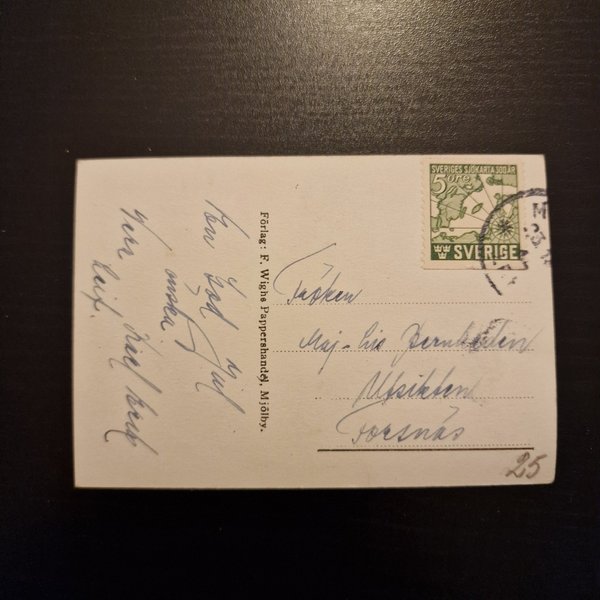 En God Jul
önska
Förlag: F. Wighs Pappershandel, Mjölby.
SVERIGES SJÖKARTA 300 ÅR
5 öre
SVERIGE
M
23.12
Fröken
Maj-Lis
Utsikten
Forsnäs
25